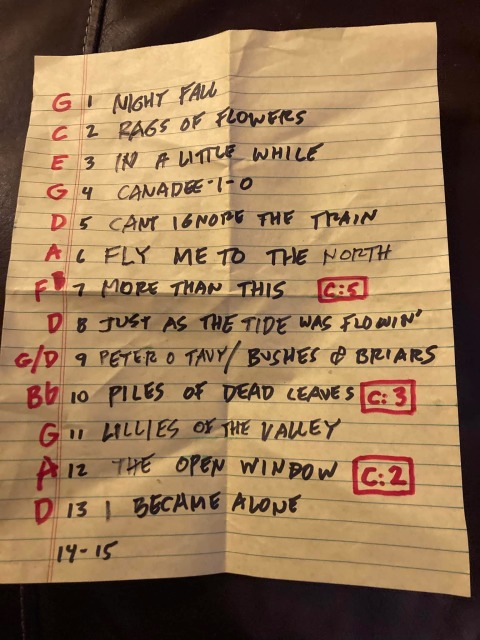 G 1 NIGHT FALL
C 2 RAGS OF FLOWERS
E 3 IN A LITTLE WHILE
G 4 CANADEE-I-O
D 5 CANT IGNORE THE TRAIN
A 6 FLY ME TO THE NORTH
F# 7 MORE THAN THIS C:5
D 8 JUST AS THE TIDE WAS FLOWIN'
G/D 9 PETER O TAVY/ BUSHES & BRIARS
Bb 10 PILES OF DEAD LEAVES C:3
G 11 LILLIES OF THE VALLEY
A 12 THE OPEN WINDOW C:2
D 13 I BECAME ALONE
14-15